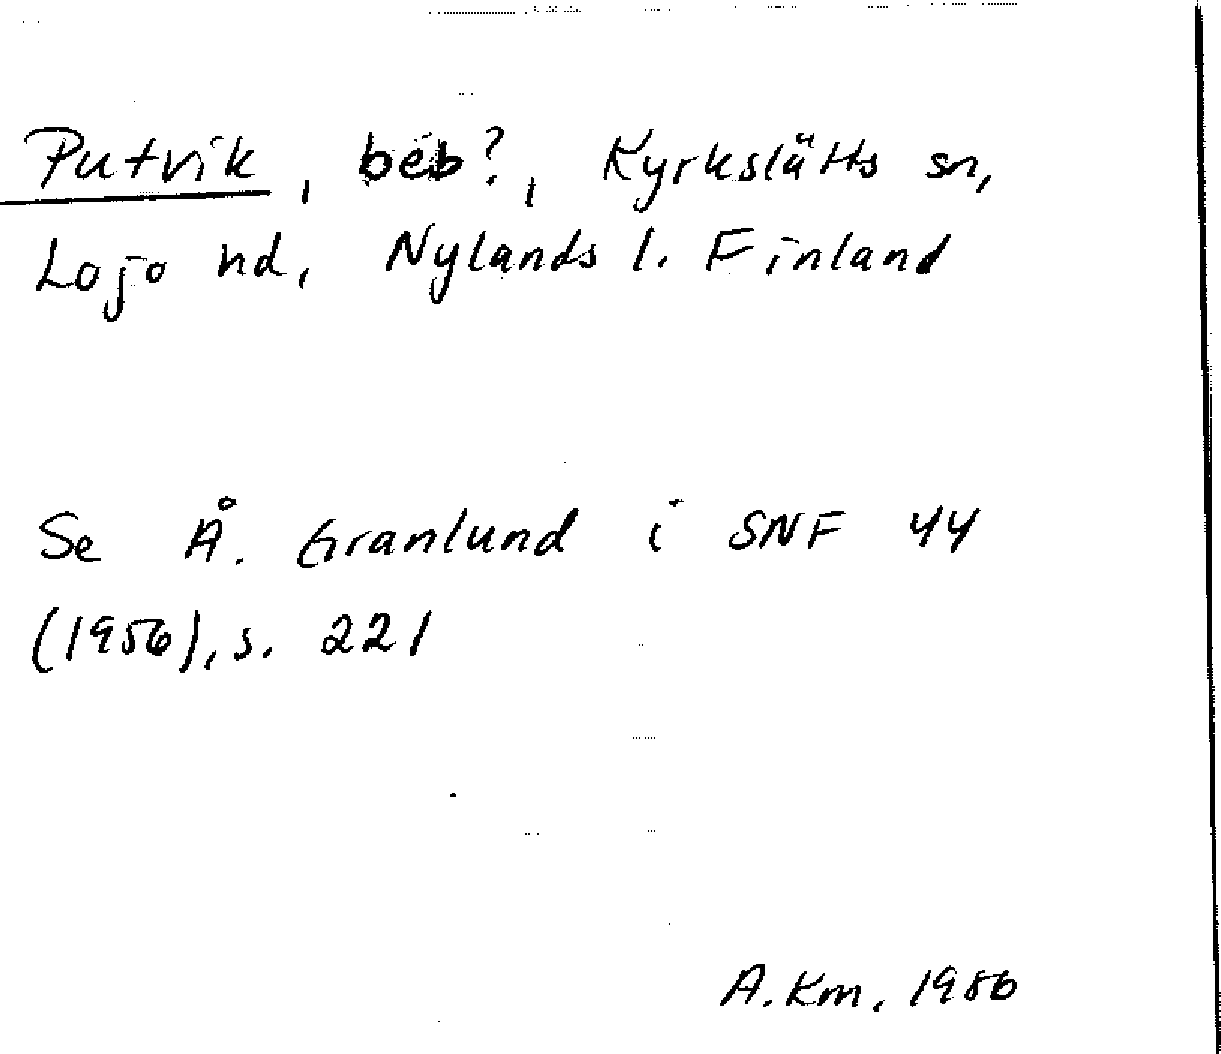 Putvik, beb?, Kyrkslätts sn,
Lojo hd, Nylands l. Finland
Se Å. Granlund i SNF 44
(1956), s. 221
A. Km. 1986